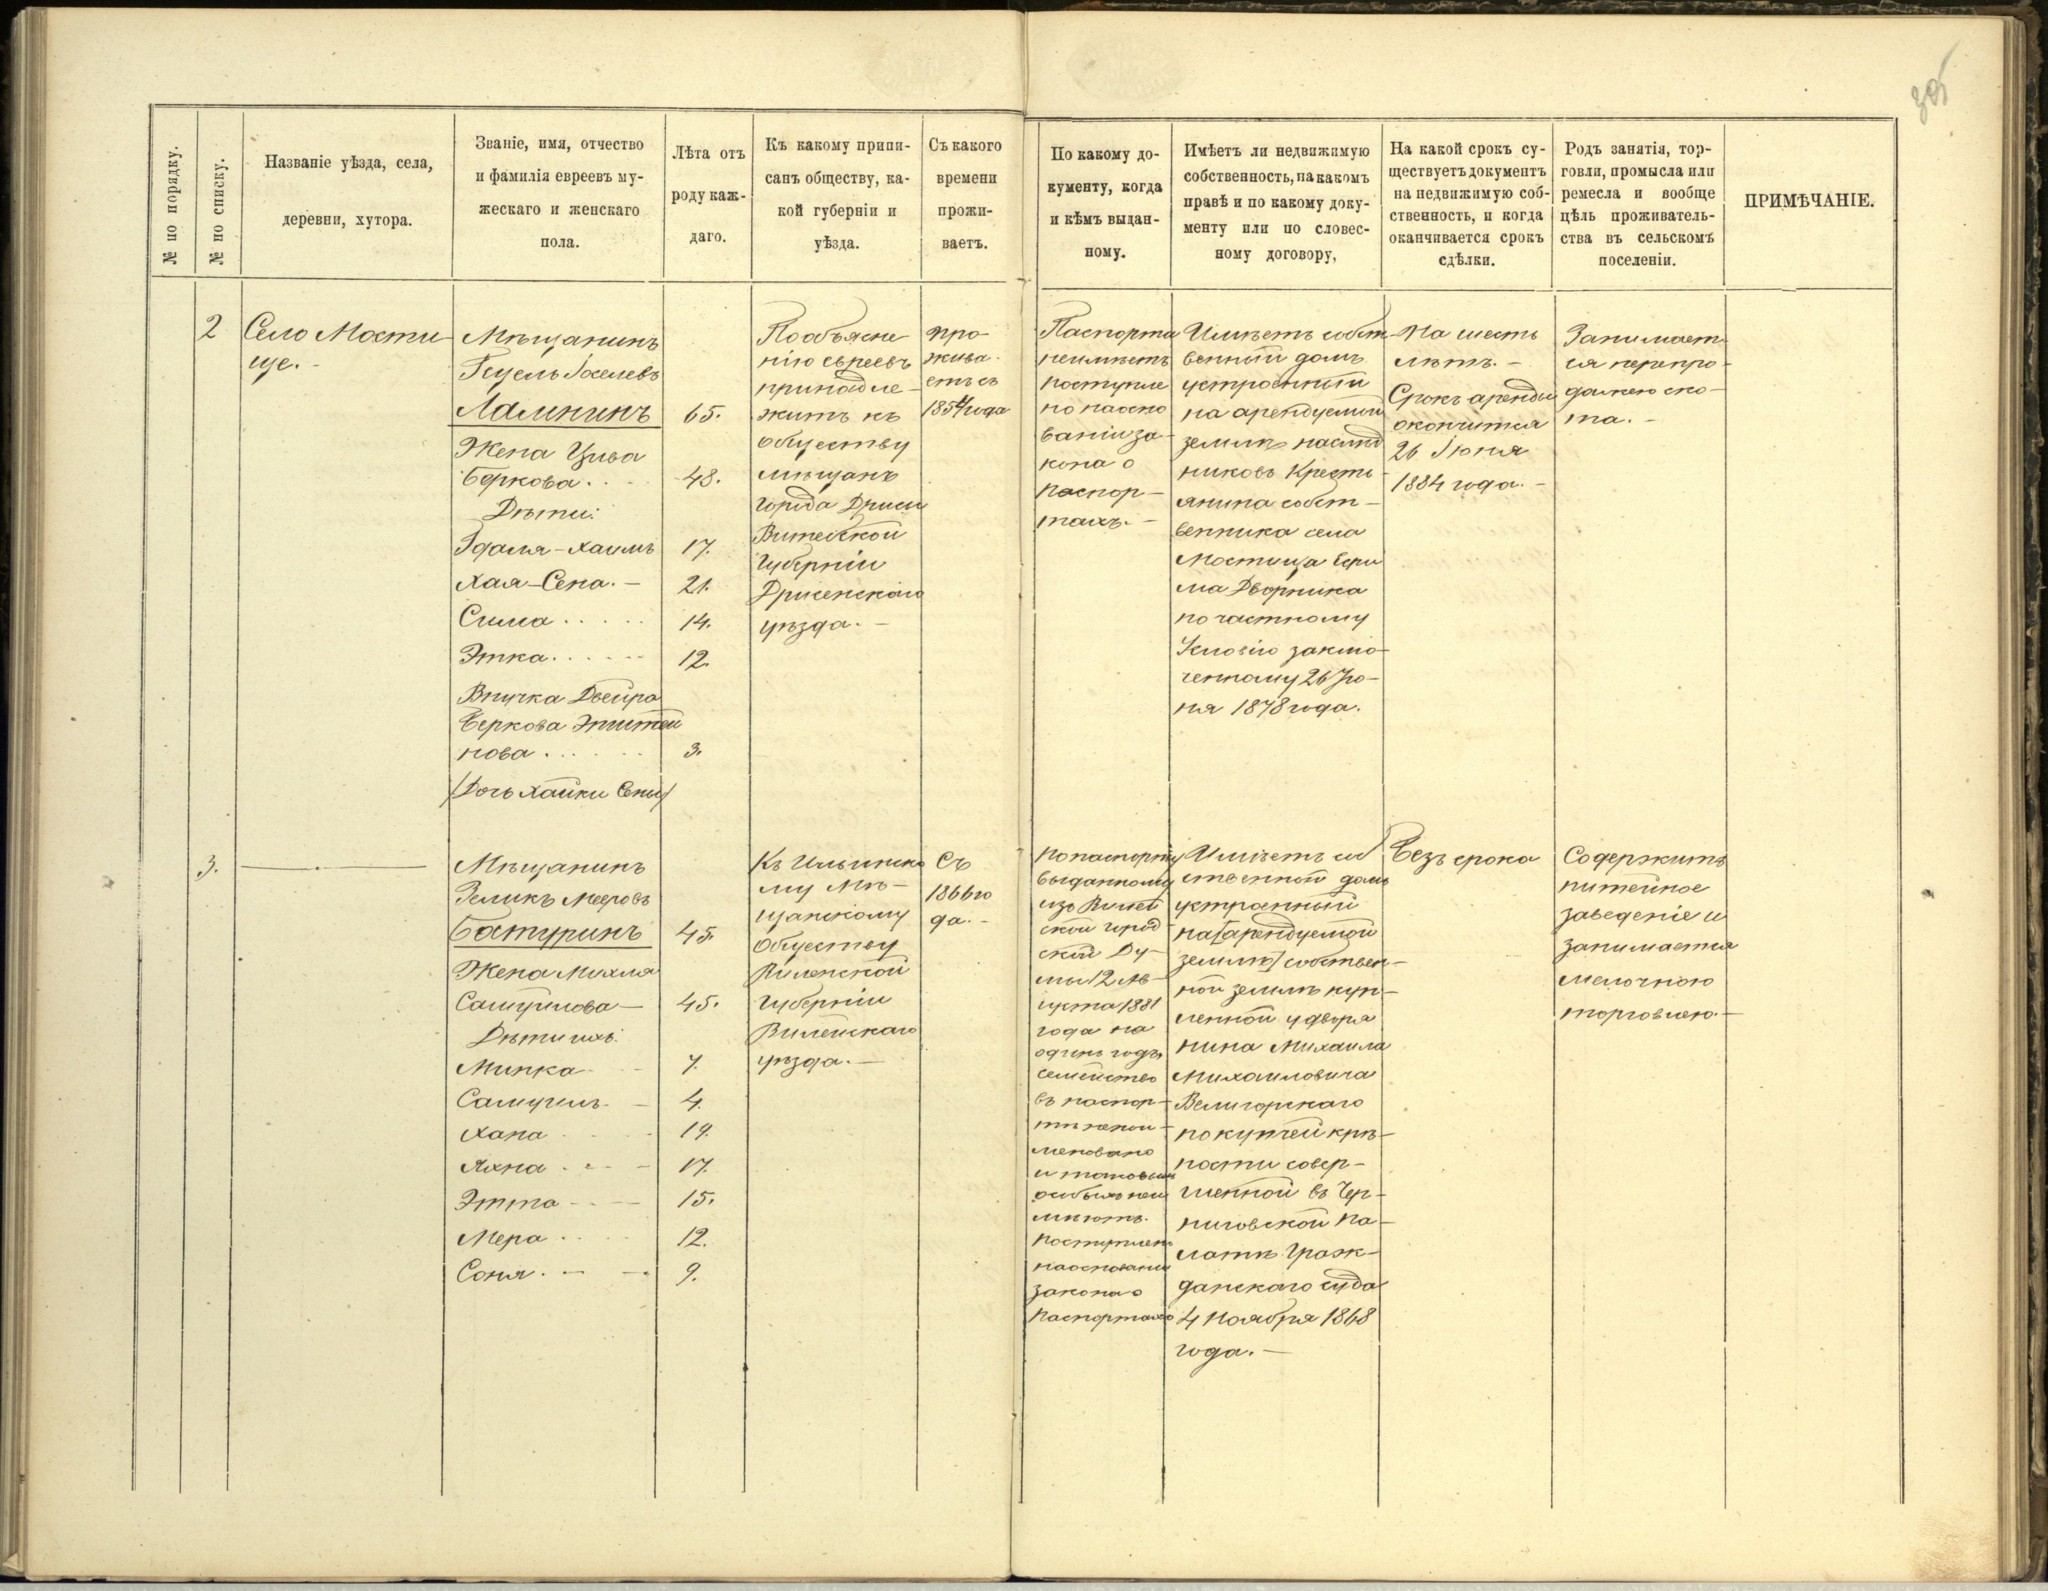 № по порядку.
№ по списку.
Названіе уѣзда, села,
деревни, хутора.
Званіе, имя, отчество
и фамилія евреевъ му-
жескаго и женскаго
пола.
Лѣта отъ
роду каж-
даго.
Къ какому припи-
санъ обществу, ка-
кой губерніи и
уѣзда.
Съ какого
времени
прожи-
ваетъ.
По какому до-
кументу, когда
и кѣмъ выдан-
ному.
Имѣетъ ли недвижимую
собственность, на какомъ
правѣ и по какому доку-
менту или по словес-
ному договору,
На какой срокъ су-
ществуетъ документъ
на недвижимую соб-
ственность, и когда
оканчивается срокъ
сдѣлки.
Родъ занятія, тор-
говли, промысла или
ремесла и вообще
цѣль проживатель-
ства въ сельскомъ
поселеніи.
ПРИМѢЧАНІЕ.
2
Село Мости
ще.-
Мѣщанинъ
65.
Жена Цива
Беркова.
48.
Дѣти:
Гдаля-Хаимъ
17.
Хая-Сена.-
21.
Сима
14.
Этка
12.
Внучка Двейра
Беркова
нова
3.
/Дочь Хайки Сены/
По объясне
нію евреевъ
принадле-
житъ къ
обществу
мѣщанъ
города Дрисы
Витебской
Губерніи
Дрисенскаго
уѣзда.-
про-
жива-
етъ съ
1854 года
Паспорта
неимѣетъ
поступле
но на осно
ваніи за-
кона о
паспор-
тахъ.-
Имѣетъ собст
венный домъ
устроенный
на арендуемой
землѣ наслѣд
никовъ Кресть-
янина собст-
венника села
Мостища Ефи
ма Дворника
по частному
Условію заклю-
ченному 26 Ію-
ня 1878 года.
На шесть
лѣтъ.-
Срокъ аренды
окончится
26 Іюня
1884 года.-
Занимает
ся перепро-
дажею ско-
та.-
3.
Мѣщанинъ
Зеликъ Мееровъ
Батуринъ
45.
Жена Михля
Самуилова-
45.
Дѣти ихъ:
Минка
7.
Самуилъ
4.
Хана
19.
Яхна
17.
Этта
15.
Мера
12.
Соня.
9.
Къ Ильинско
му Мѣ-
щанскому
Обществу
Виленской
Губерніи
Вилейскаго
уѣзда.-
Съ
1866 го
да.-
По паспорту
выданному
изъ Вилей
ской город
ской Ду-
мы 12 Ав-
густа 1881
года на
одинъ годъ,
семейство
въ паспор-
тѣ непои-
меновано
и таковыхъ
особыхъ неи
мѣютъ.
Поступлено
на основаніи
закона о
паспортахъ
Имѣетъ соб
ственной домъ
устроенный
на [арендуемой
землѣ] собствен-
ной землѣ куп-
ленной у дворя
нина Михаила
Михаиловича
Велигорскаго
по купчей крѣ-
пости совер-
шенной въ Чер-
ниговской Па-
латѣ Граж-
данскаго суда
4 Ноября 1868
года.-
Безъ срока
Содержитъ
питейное
заведеніе и
занимается
мелочною
торговлею.-